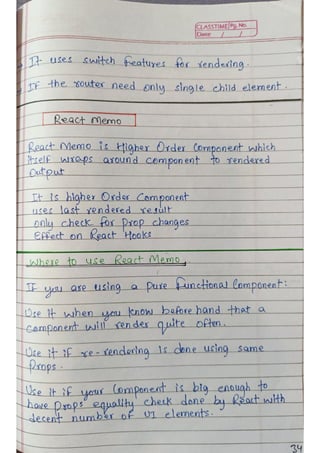 CLASSTIME Pg. No.
Date / /
It uses switch features for rendering.
If the router need only single child element.
React Memo
React Memo is Higher Order Component which
itself wraps around component to rendered
output
It is higher Order Component
uses last rendered result
only check for prop changes
Effect on React Hooks
Where to use React Memo
If you are using a pure functional Component:
Use it when you know before hand that a
component will render quite often.
Use it if re-rendering is done using same
Props.
Use it if your Component is big enough to
have props equality check done by React with
decent number of UI elements.
34